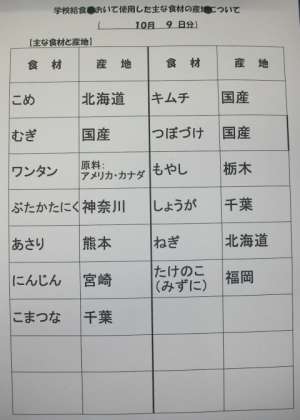 学校給食●おいて使用した主な食材の産地●について
( 10月 9日分)
[主な食材と産地]
食 材 産 地 食 材 産 地
こめ 北海道 キムチ 国産
むぎ 国産 つぼづけ 国産
ワンタン 原料:
アメリカ・カナダ もやし 栃木
ぶたかたにく 神奈川 しょうが 千葉
あさり 熊本 ねぎ 北海道
にんじん 宮崎 たけのこ
(みずに) 福岡
こまつな 千葉